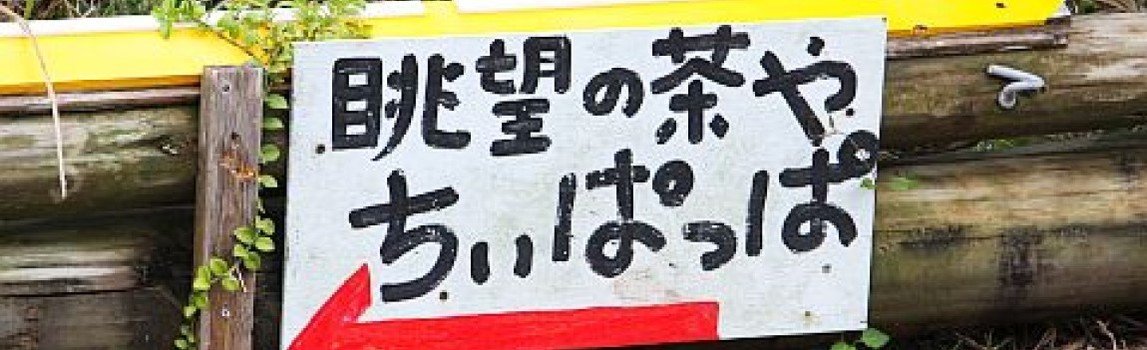 眺望の茶や
ちぃぱっぱ